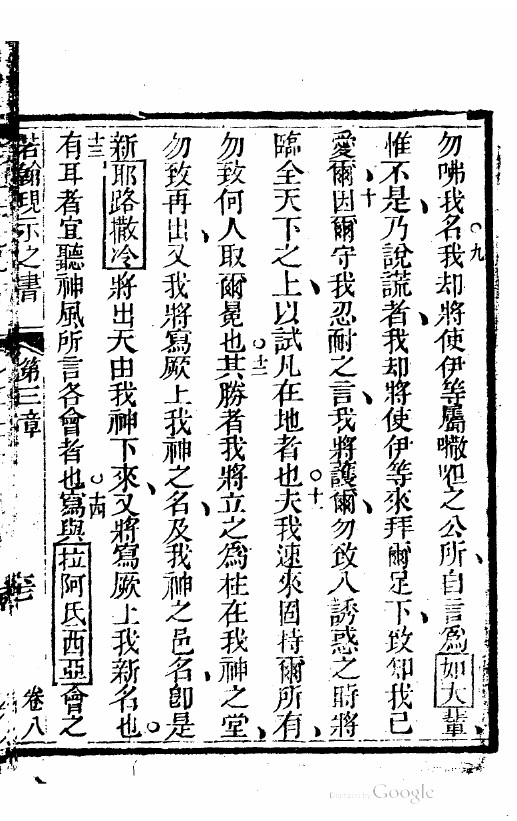 勿咈我名○九我却將使伊等屬𠹌呾之公所自言爲如大輩
惟不是乃說謊者我却將使伊等來拜爾足下致知我已
愛爾十因爾守我忍耐之言我將護爾勿致入誘惑之時將
臨全天下之上以試凡在地者也○十夫我速來固持爾所有
勿致何人取爾冕也○十二其勝者我將立之爲柱在我神之堂
勿致再出又我將寫厥上我神之名及我神之邑名卽是
新耶路撒冷將出天由我神下來又將寫厥上我新名也○
十三有耳者宜聽神風所言各會者也○十四寫與拉阿氏西亞會之
若翰現示之書 第三章 卷八
Digitized by Google